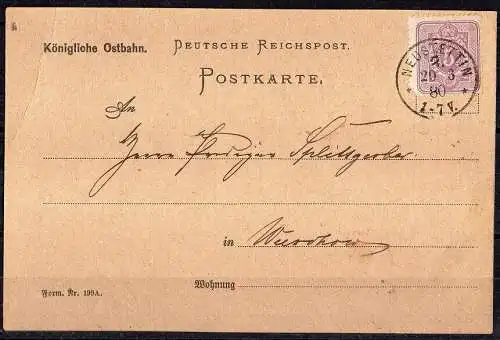 Königliche Ostbahn.
DEUTSCHE REICHSPOST.
POSTKARTE.
NEUSTETTIN
20 3
80
1-7 V.
An
Herrn Prediger Splittgerber
in Wurchow
Wohnung
Form. Nr. 199A.